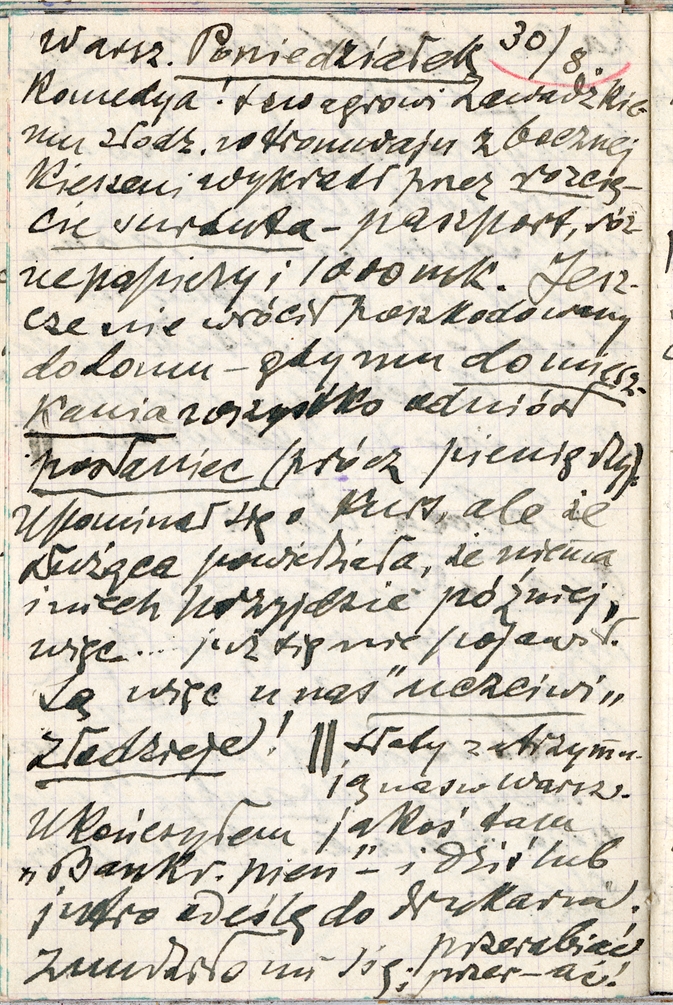 Warsz. Poniedziałek 30/8.
Komedya! szwagrowi Zawadzkie-
mu złodz. w tramwaju z bocznej
kieszeni wykradł przez rozcię-
cie surduta – paszport, róż-
ne papiery i 1000 mk. Jesz-
cze nie wrócił poszkodowany
do domu – gdy mu do miesz-
kania wszystko odniósł
posłaniec (prócz pieniędzy).
Upominał się o kurs, ale że
służąca powiedziała, że niema
i niech przyjdzie później,
więc... już się nie pojawił.
Są więc u nas "uczciwi„
złodzieje!
|| słoty zatrzymu-
ją nas w Warsz.
Ukończyłem jakoś tam
„Bankr. pien" – i dziś lub
jutro odeślę do drukarni.
Znudziło mi się: przerabiać
przer–ać!